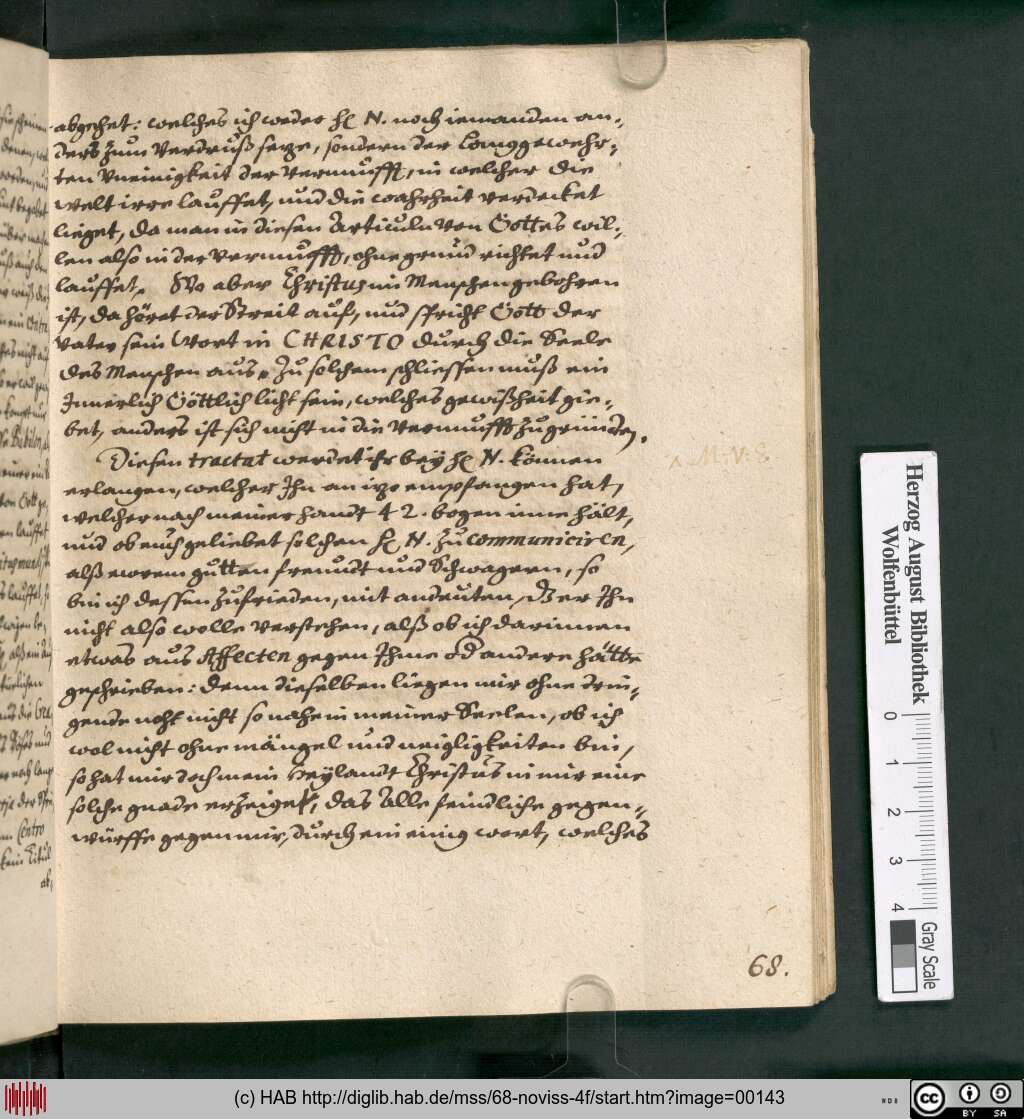 abgehet: welches ich weder H. N. noch iemanden an-
ders zum Verdruß setze, sondern der Langgewehr-
ten Uneinigkeit der Vernunfft, in welcher die
welt irre lauffet, und die wahrheit verdecket
lieget, da man in diesen Articuln von Gottes wil-
len also in der Vernunfft, ohne grund richtet und
lauffet. Wo aber Christus im Menschen gebohren
ist, da höret der Streit auf, und spricht Gott der
Vater sein Wort in CHRISTO durch die Seele
des Menschen aus. Zu solchem schliessen muß ein
Innerlich Göttlich licht sein, welches gewißheit gie-
bet, anders ist sich nicht in die Vernunfft zu gründen.
Diesen tractat werdet ihr bey H. N. können
erlangen, welcher Ihn an itzo empfangen hat,
welcher nach meiner handt 42. bogen inne hält,
und ob euch geliebet solchen H. N. zu communiciren,
alß ewrem gutten freundt und Schwagern, so
bin ich dessen zufrieden, mit andeuten, Der Ihn
nicht also wolle verstehen, alß ob ich darinnen
etwas aus Affecten gegen Ihme od andere hätte
geschrieben: denn dieselben liegen mir ohne drin-
gende noht nicht so nahe in meiner Seelen, ob ich
wol nicht ohne mängel und neigligkeiten bin,
so hat mir doch mein Heylandt Christus in mir eine
solche gnade erzeiget, das Alle feindliche gegen-
würffe gegen mir, durch ein einig wort, welches
68.
Herzog August Bibliothek
Wolfenbüttel
0 1 2 3 4
Gray Scale
(c) HAB http://diglib.hab.de/mss/68-noviss-4f/start.htm?image=00143
cc BY SA